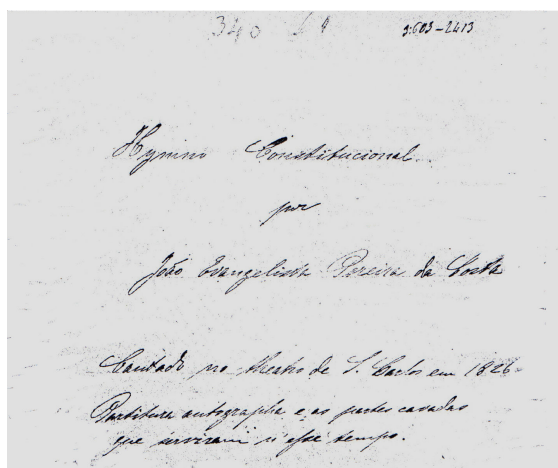 340
9:603-2413
Hymno Constitucional
por
João Evangelista Pereira da Costa
Cantado no theatro de S. Carlos em 1826.
Partitura autographa e as partes cavadas
que serviram n'esse tempo.